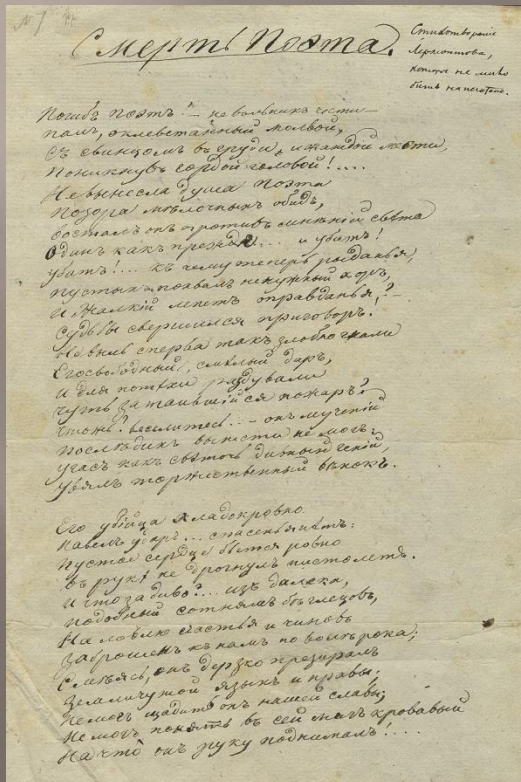 № 7
Смерть Поэта.
Стихотворение
Лермонтова,
которое не могло
быть напечатано.
Погибъ поэтъ! — невольникъ чести —
палъ, оклеветанный молвой,
Съ свинцомъ въ груди, и жаждой мести,
Поникнувъ гордой головой!....
Не вынесла душа поэта
Позора мѣлочныхъ обидъ,
Возсталъ онъ противъ мнѣній свѣта
Одинъ какъ прежде.... и убитъ!
Убитъ!.... къ чему теперь рыданья,
Пустыхъ похвалъ ненужный хоръ,
И жалкій лепетъ оправданья,? —
Судьбы свершился приговоръ!
Не вы ль сперва такъ злобно гнали
Его свободный, смѣлый даръ,
И для потѣхи раздували
Чуть затаившійся пожаръ?
Чтожъ? веселитесь... — онъ мученій
Послѣднихъ вынести не могъ:
Угасъ какъ свѣточь дивный геній,
Увялъ торжественный вѣнокъ.
Его убійца хладокровно
Навелъ ударъ... спасенья нѣтъ:
Пустое сердце бьется ровно
Въ рукѣ не дрогнулъ пистолетъ.
И что за диво?... изъ далека,
подобный сотнямъ бѣглецовъ,
На ловлю счастья и чиновъ
Заброшенъ къ намъ по волѣ рока;
Смѣясь, онъ дерзко презиралъ
Земли чужой языкъ и нравы:
Не могъ щадить онъ нашей славы;
Не могъ понять въ сей мигъ кровавый
На что онъ руку поднималъ!....